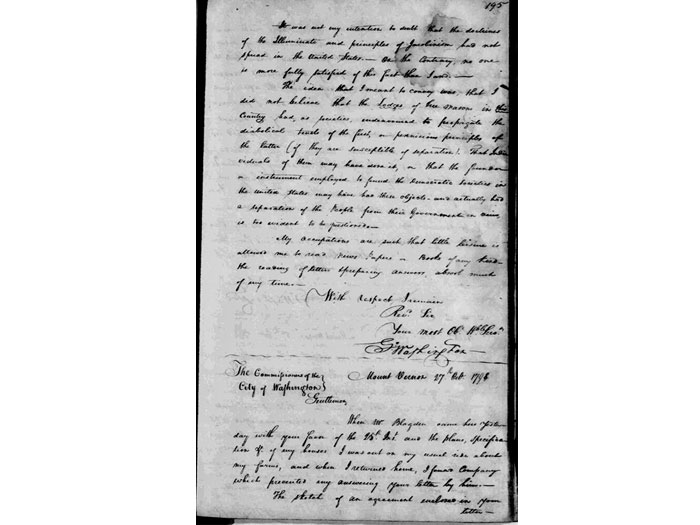 195
It was not my intention to doubt that the doctrines
of the Illuminati and principles of Jacobinism had not
spread in the United States.— On the contrary, no one
is more fully satisfied of this fact than I am.—
The idea that I meant to convey was, that I
did not believe that the Lodges of Free Masons in this
Country had, as societies, endeavoured to propagate the
diabolical tenets of the first, or pernicious principles of
the latter (if they are susceptible of separation). That Indi-
viduals of them may have done it, or that the founder
or instrument employed to found the Democratic Societies in
the United States may have had these objects—and actually had
a separation of the People from their Government in view,
is too evident to be questioned.—
My occupations are such that little leisure is
allowed me to read News Papers or Books of any kind—
the reading of letters & preparing answers, absorb much
of my time.—
With respect I remain
Revd. Sir
Your most Ob. Hble Servt.
Go. Washington
The Commissioners of the
City of Washington
Mount Vernon 27th Oct 1798
Gentlemen,
When Mr Blagden came here yester-
day with your favor of the 25th Inst and the plans, specifica-
tion &c. of my houses I was out on my usual ride about
my farms, and when I returned home, I found Company
which prevented my answering your letter by him.—
The sketch of an agreement enclosed in your
letter—